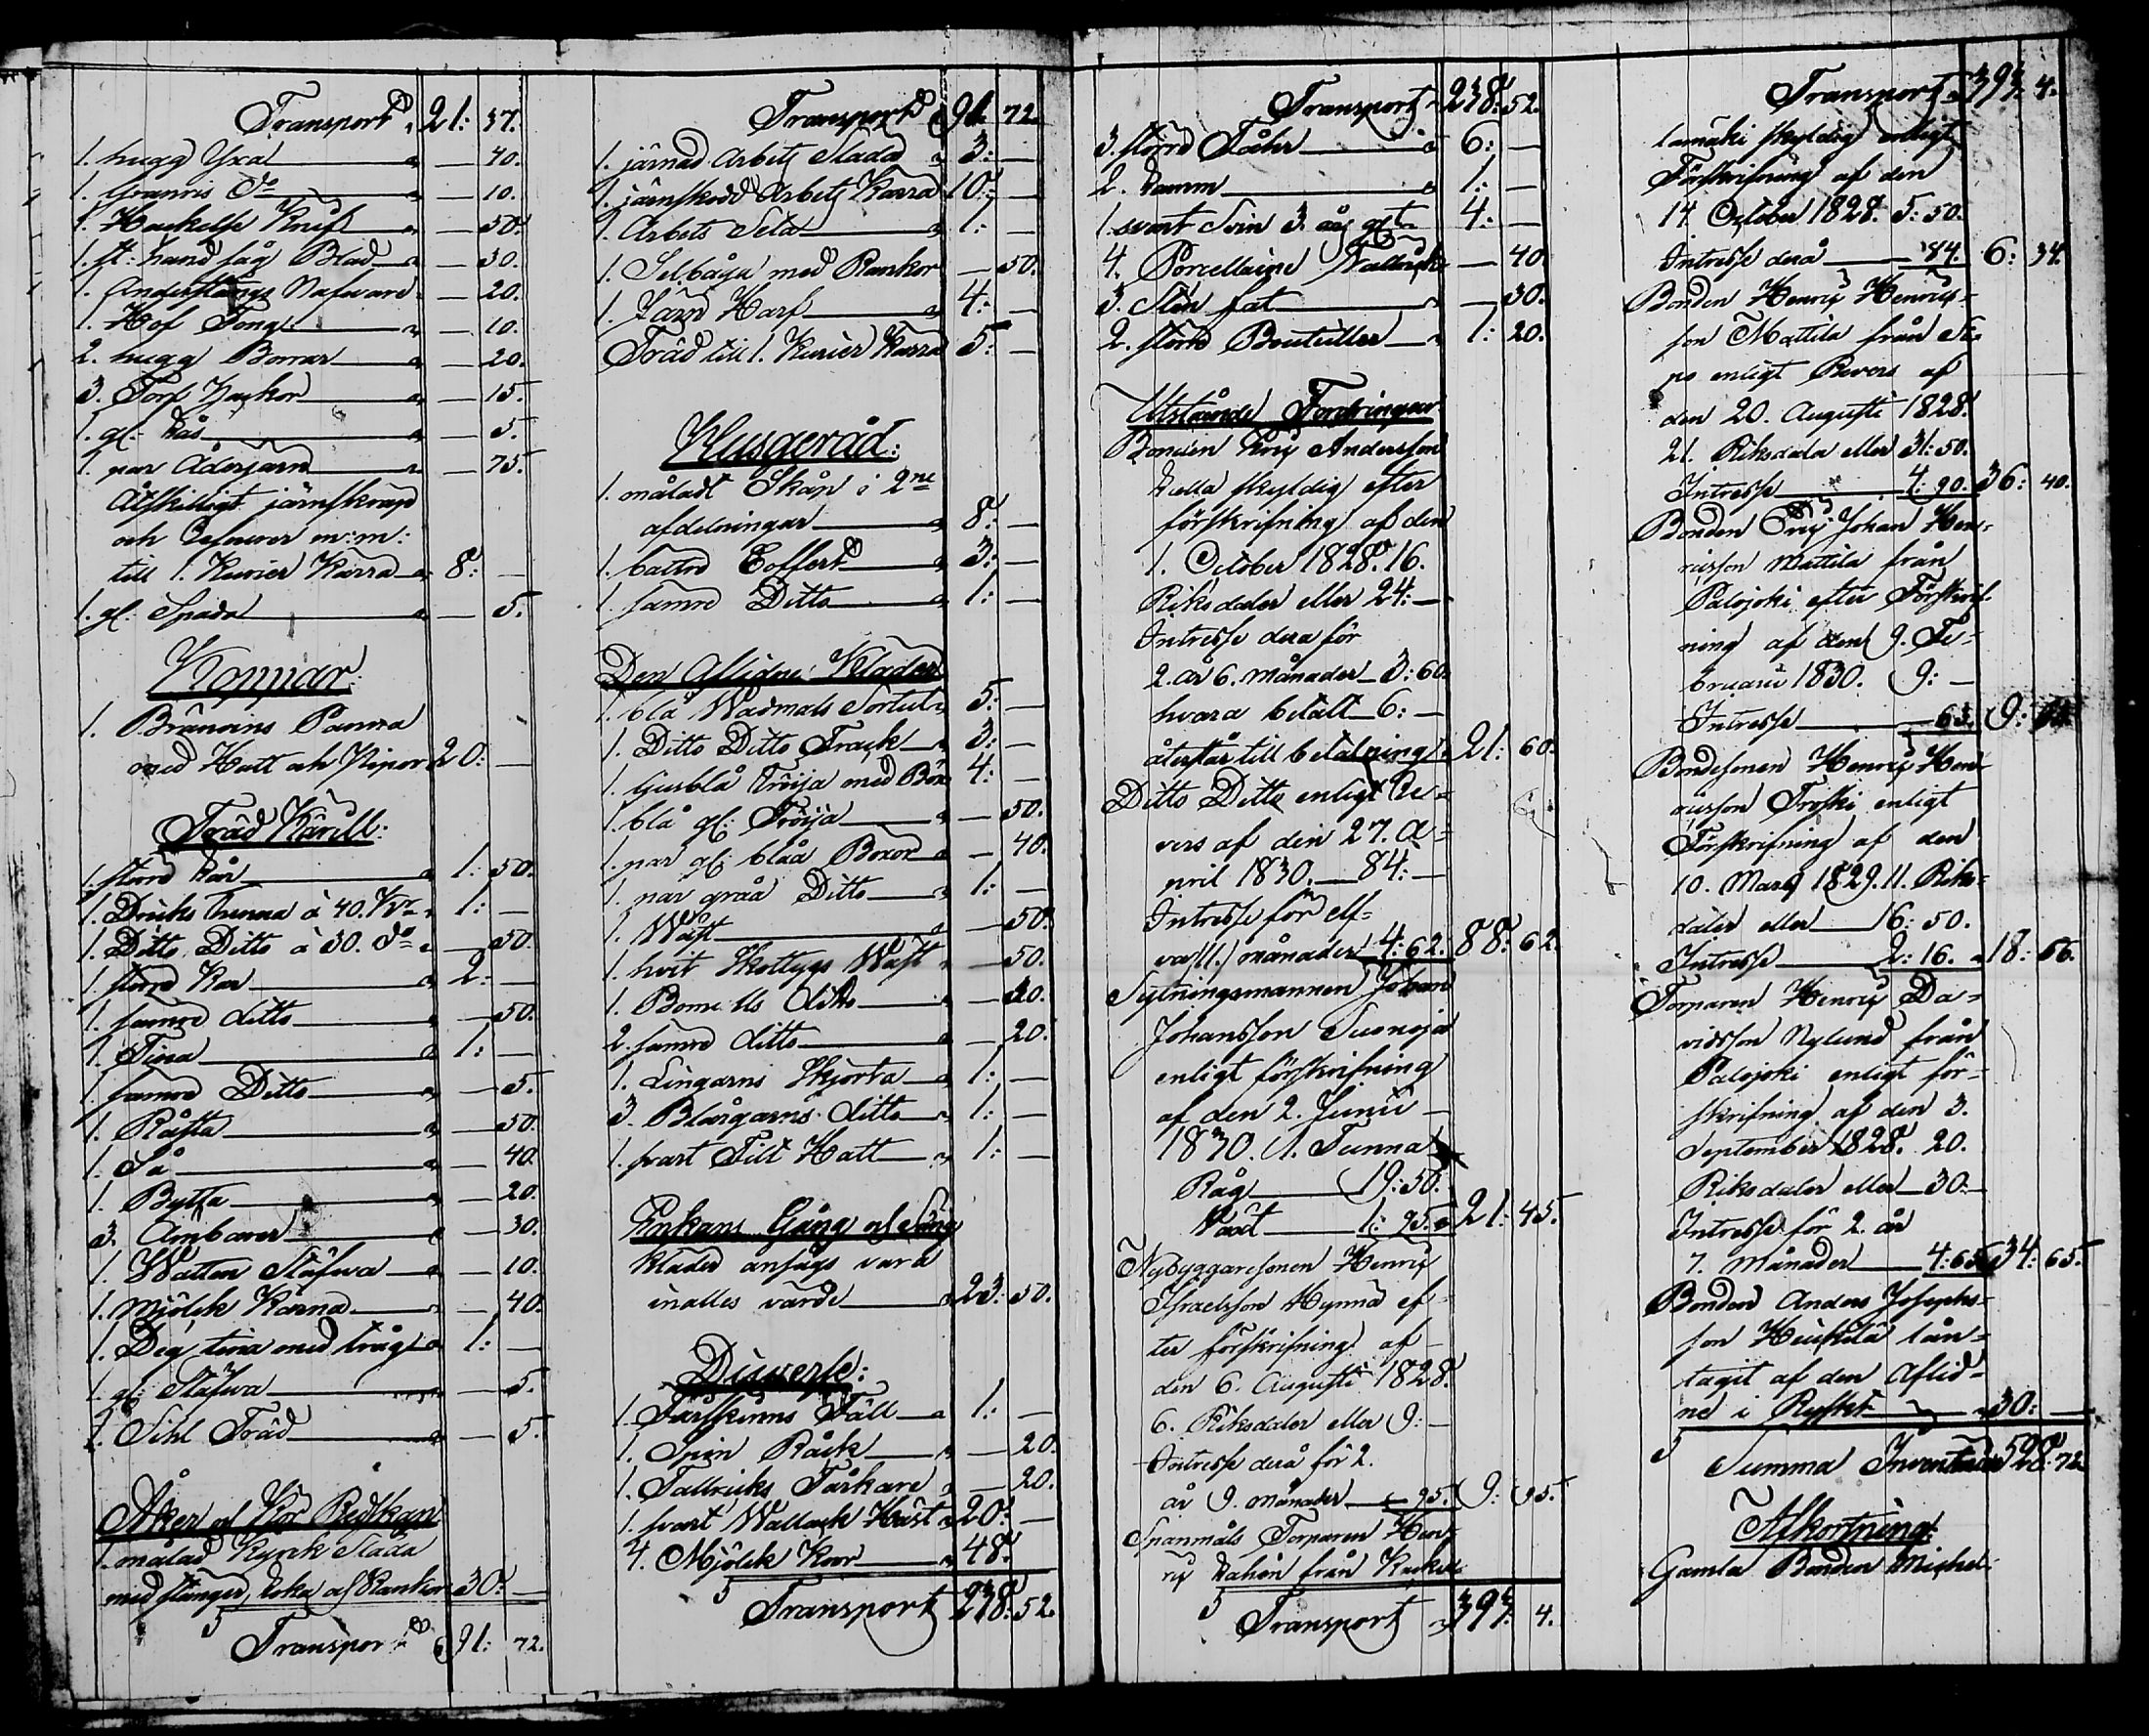 Transport 21: 37.
1. hugg Yxa — 40.
1. Granris do — 10.
1. Hackelse Knif — 50.
1. st: hand såg Blad — 30.
1. Anderstångs Nafware — 20.
1. Hof Tong — 10.
2. hugg Borrar — 20.
3. Torf Hackor — 15.
1. gl: — 5.
1. par Åderjarn — 75.
Åtskilligt järnskrap
och m:m:
till 1. Kurier Kärra 8: —
1. gl: Spada — 5.
Koppar:
1. Bränvins Panna
med Hatt och Pipor 20: —
Träd Kärill:
1. större kar 1: 50.
1. Dricks tunna à 40. 1: —
1. Ditto Ditto à 30. do — 50.
1. större Kar 2: —
1. samre ditto — 50.
1. Tina 1: —
1. samre Ditto — 5.
1. Råsta — 50.
1. Så — 40.
1. Bytta — 20.
3. Ämbarer — 30.
1. Watten Stäfwa — 10.
1. Mjölck Karna — 40.
1. Deg tina med tråg 1: —
1. gl: Stäfwa — 5.
1. Sihl Träd — 5.
Åker och Kör Redskap
1. målad Kyrck Släda
med stänger, och Rankor 30: —
5 Transport 91: 72.
Transport 91: 72.
1. järnad Arbets Släda 3: —
1. järnskodd Arbets Karra 10: —
1. Arbets Sela 1: —
1. Selbåga med Rankor — 50.
1. Harf 4: —
Träd till 1. Kurier Karra 5: —
Husgeråd:
1. måladt Skåp i 2ne
afdelningar 8: —
1. battre Coffert 3: —
1. samre Ditto 1: —
Den Aflidnes Klader
1. blå Wadmals Sortut 5: —
1. Ditto Ditto Frack 3: —
1. ljusblå tröija med Böx 4: —
1. blå gl: Tröija — 50.
1. par gl: blåa Boxor — 40.
1. par gråa Ditto 1: —
1. Wäst — 50.
1. hvit Skottygs Wäst — 50.
1. Bomulls ditto —
2. samre ditto — 20.
1. Lingarns Skjorta 1: —
3. Blångarns ditto 1: —
1. svart Filt Hatt 1: —
Enkans Gång och Säng
klader ansågs vara
inalles värde 23: 50.
Diverse:
1. Fårskinns Fäll 1: —
1. Spin Råck — 20.
1. Tallricks Tårkare — 20.
1. svart Wallack Häst 20: —
4. Mjölck Koor 48: —
5 Transport 238: 52.
Transport 238: 52.
3. större Fåhr 6: —
2. Lamm 1: —
1. svart Svin 3. års glt 4: —
4. Porcellaine Tallrickar — 40.
3. Sten fat — 30.
2. större Bouteiller 1: 20.
Utstående Fordringar
Bonden Andersson
skyldig efter
förskrifning af den
1. October 1828. 16.
Riksdaler eller 24: —
Intresse dera för
2. år 6. månader 3: 60.
hvara betalt 6: —
återstår till betalning 21: 60.
Ditto Ditto enligt Re-
vers af den 27. A-
pril 1830. 84: —
Intresse för elf-
va (11.) månader 4: 62. 88: 62.
Sytningsmannen Johan
Johansson Suonoja
enligt förskrifning
af den 2. Junii
1830. 1. Tunna
Råg 19: 50.
1: 95. 21: 45.
Nybyggaresonen Henric
Israelsson Hynnä ef-
ter förskrifning af
den 6. Augusti 1828.
6. Riksdaler eller 9: —
Intresse derå för 2.
år 9. månader — 95. 9: 95.
Spanmåls Torparen Hen-
ric från
5 Transport 397: 4.
Transport 397: 4.
lamäki skyldig enligt
Förskrifning af den
14 October 1828. 5: 50.
Intresse derå — 84. 6: 34.
Bonden Henric Henrics-
son Mattila från
enligt Revers af
den 20. Augusti 1828.
21. Riksdaler eller 31: 50.
Intresse 4: 90. 36: 40.
Bonden Johan Hen-
ricsson Mattila från
Palojoki efter Förskrif-
ning af den 9. Fe-
bruarii 1830. 9: —
Intresse 9:
Bondesonen Henric Hen-
ricsson Troski enligt
Förskrifning af den
10. Mars 1829. 11. Riks-
daler eller 16: 50.
Intresse 2: 16. 18: 66.
Torparen Henric Da-
vidsson Nylund från
Palojoki enligt för-
skrifning af den 3.
September 1828. 20.
Riksdaler eller 30: —
Intresse för 2. år
7. Månader 4: 65. 34: 65.
Bonden Anders Josephs-
son Heickilä lån-
tagit af den Aflid-
ne i Ryskt 30: —
5 Summa Inventarier 528: 72.
Afkortning:
Gamla Bonden Michel